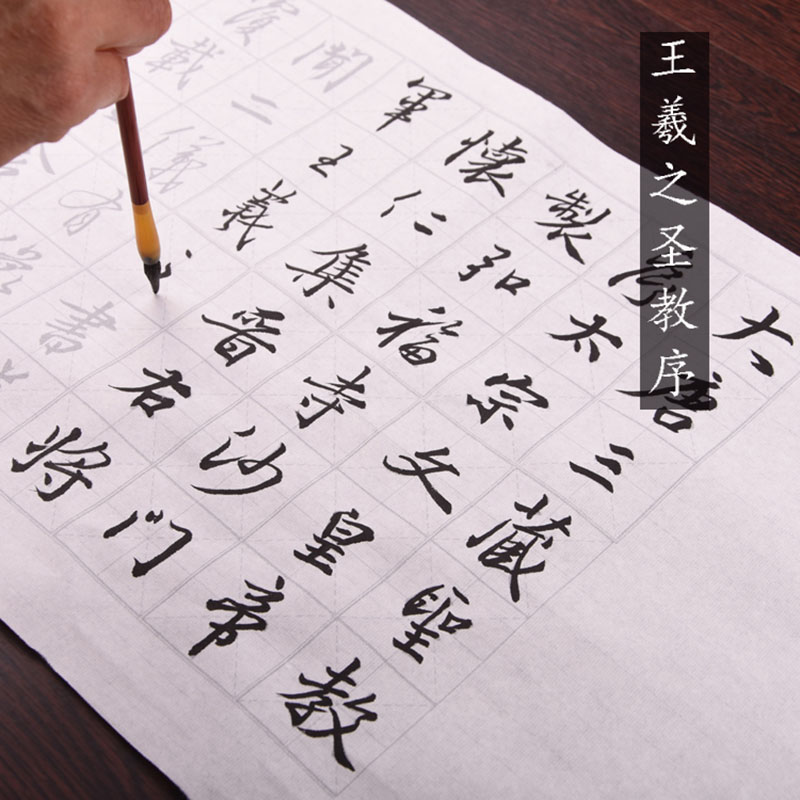 王羲之圣教序
大唐三藏聖教
序太宗文皇帝
製弘福寺沙门
懷仁集晉右将
軍王羲之書
聞二儀有像
載